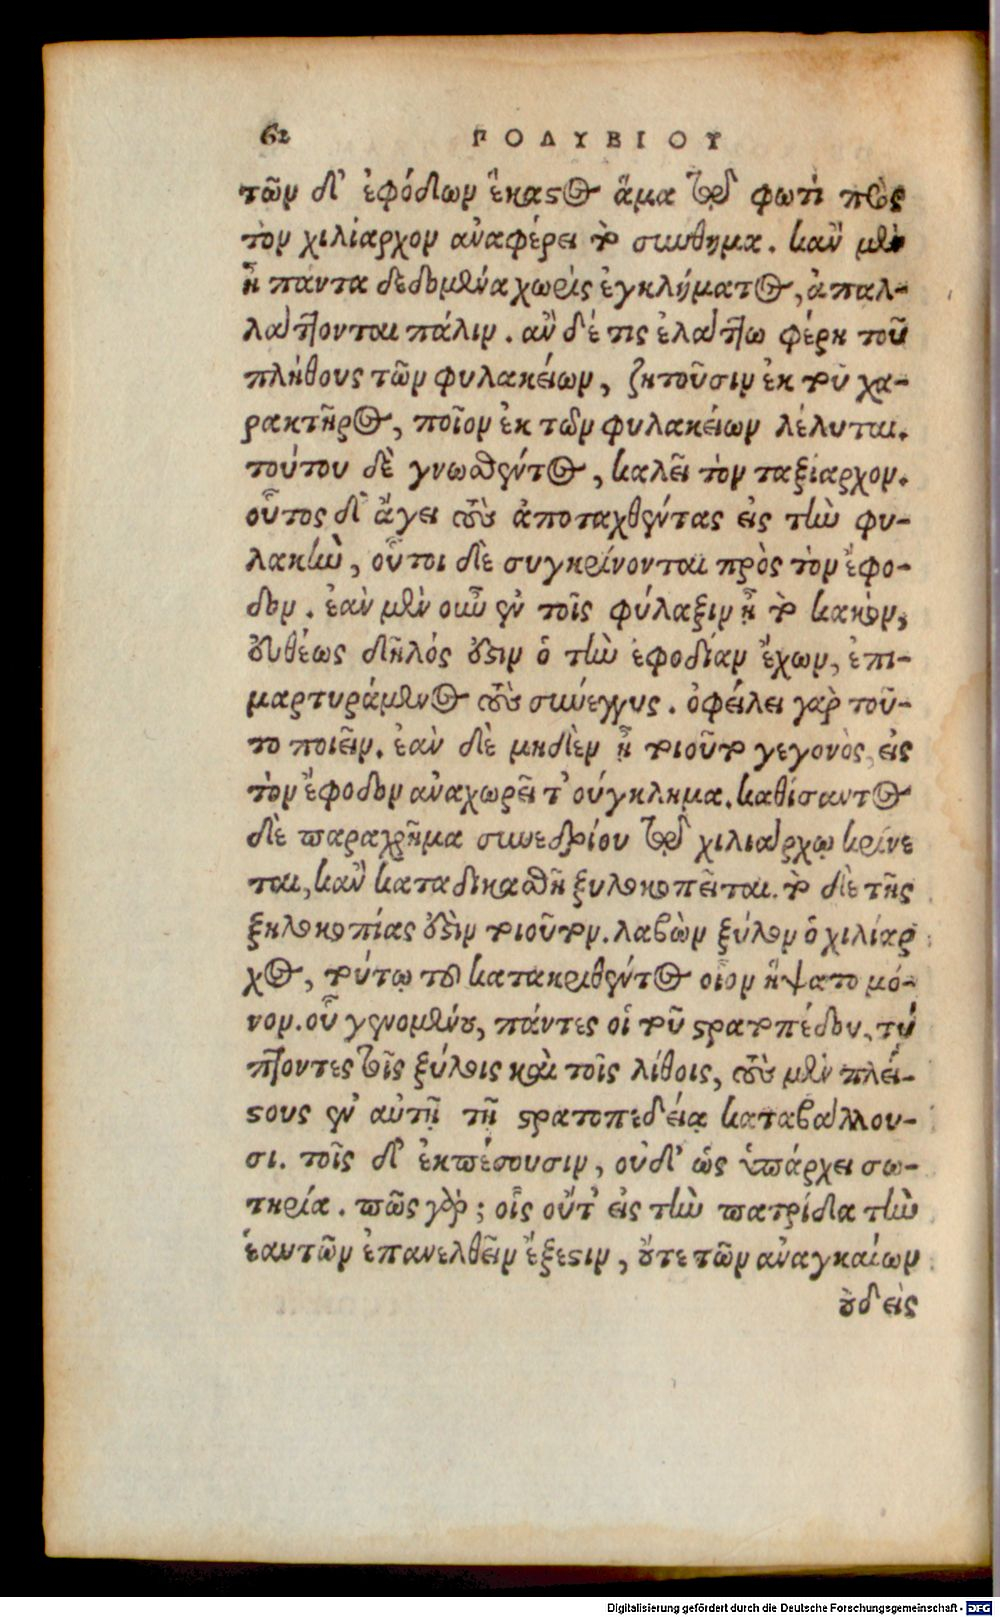 62 ΠΟΛΥΒΙΟΥ
τῶν δ' ἐφόδων ἕκαστος ἅμα τῷ φωτὶ πρὸς
τὸν χιλίαρχον ἀναφέρει τὸ σύνθημα. κἂν μὲν
ᾖ πάντα δεδομένα χωρὶς ἐγκλήματος, ἀπαλ-
λάττονται πάλιν. ἂν δέ τις ἐλάττω φέρῃ τοῦ
πλήθους τῶν φυλακείων, ζητοῦσιν ἐκ τοῦ χα-
ρακτῆρος, ποῖον ἐκ τῶν φυλακείων λέλυται.
τούτου δὲ γνωσθέντος, καλεῖ τὸν ταξίαρχον.
οὗτος δ' ἄγει τοὺς ἀποταχθέντας εἰς τὴν φυ-
λακὴν, οὗτοι δὲ συγκρίνονται πρὸς τὸν ἔφο-
δον. ἐὰν μὲν οὖν ἐν τοῖς φύλαξιν ᾖ τὸ κακὸν,
εὐθέως δῆλός ἐστιν ὁ τὴν ἐφοδίαν ἔχων, ἐπι-
μαρτυράμενος τοὺς σύνεγγυς. ὀφείλει γὰρ τοῦ-
το ποιεῖν. ἐὰν δὲ μηδὲν ᾖ τοιοῦτο γεγονὸς, εἰς
τὸν ἔφοδον ἀναχωρεῖ τ' οὔγκλημα. καθίσαντος
δὲ παραχρῆμα συνεδρίου τῷ χιλιάρχῳ κρίνε
ται, κἂν καταδικασθῇ ξυλοκοπεῖται. τὸ δὲ τῆς
ξηλοκοπίας ἐστὶν τοιοῦτον. λαβὼν ξύλον ὁ χιλίαρ
χος, τούτῳ τοῦ κατακριθέντος οἷον ἥψατο μό-
νον. οὗ γενομένου, πάντες οἱ τοῦ στρατοπέδου, τύ
πτοντες τοῖς ξύλοις καὶ τοῖς λίθοις, τοὺς μὲν πλεί-
στους ἐν αὐτῇ τῇ στρατοπεδείᾳ καταβάλλου-
σι. τοῖς δ' ἐκπέσουσιν, οὐδ' ὡς ὑπάρχει σω-
τηρία. πῶς γάρ; οἷς οὔτ' εἰς τὴν πατρίδα τὴν
ἑαυτῶν ἐπανελθεῖν ἔξεστιν, οὔτε τῶν ἀναγκαίων
οὐδεὶς
Digitalisierung gefördert durch die Deutsche Forschungsgemeinschaft - DFG